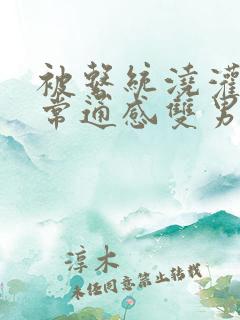 被繫統澆灌
常通感雙男
淳木
未经同意禁止转载